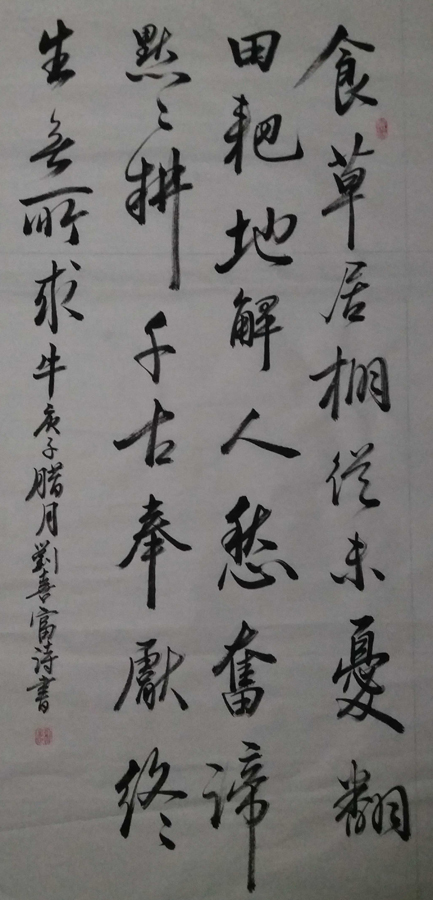 食草居棚從未憂翻
田耙地解人愁奮蹄
默〻耕千古奉獻終
生無所求牛庚子腊月劉喜富詩書